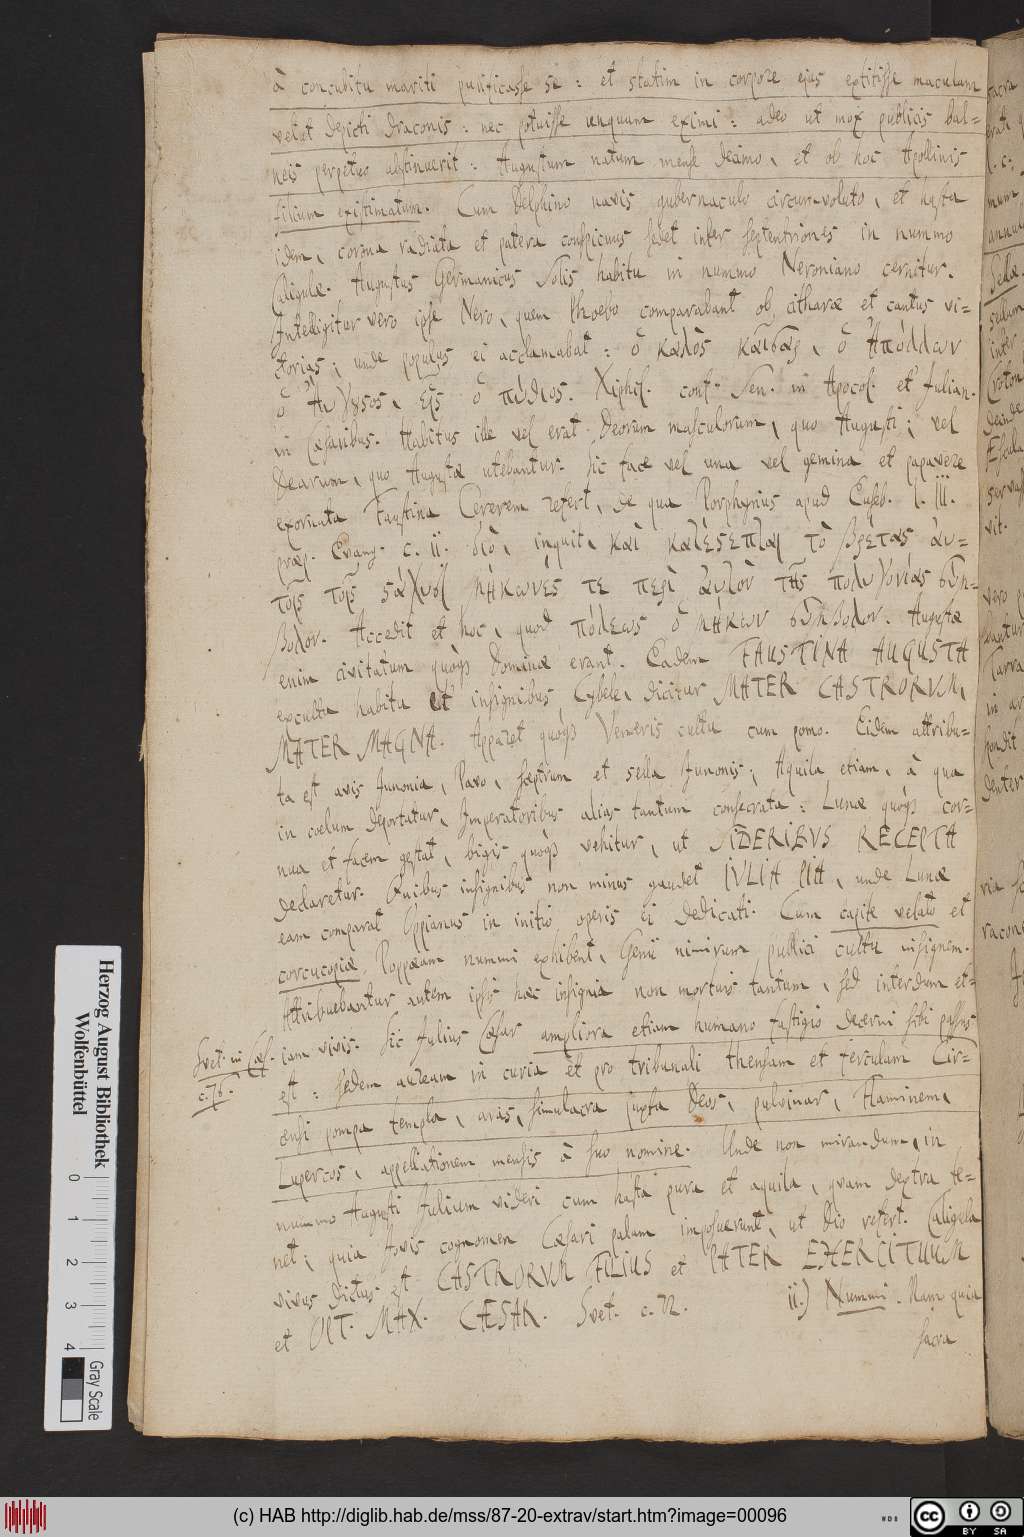 à concubitu mariti purificasse se : et statim in corpore ejus extitisse maculam
velut depicti draconis : nec potuisse unquam eximi : adeo ut mox publicis bal=
neis perpetuo abstinuerit : Augustum natum mense decimo, et ob hoc Apollinis
filium existimatum. Cum Delphino navis gubernaculo circumvoluto, et hasta
idem, corona radiata et patera conspicuus sedet inter septentriones in nummo
Caligulæ. Augustus Germanicus Solis habitu in nummo Neroniano cernitur.
Intelligitur vero ipse Nero, quem Phoebo comparabant ob citharæ et cantus vi=
ctorias ; unde populus ei acclamabat : ὁ καλὸς καῖσαρ, ὁ Ἀπόλλων
ὁ Ἄυγουστος, εἷς ὁ πύθιος. Xiphil. conf. Sen. in Apocol. et Julian.
in Cæsaribus. Habitus ille vel erat Deorum masculorum, quo Augusti ; vel
Dearum, quo Augustæ utebantur. Sic face vel una vel gemina et papavere
exornata Faustina Cererem refert, de qua Porphyrius apud Euseb. l. III.
præp. Evang. c. ii. διὸ, inquit, καὶ κατέστεπται τὸ βρέτας ἀυ=
τῆς τοῖς στάχυσι μήκωνές τε περὶ ἀυτὸν τῆς πολυγονίας σύμ=
βολον. Accedit et hoc, quod πόλεως ὁ μήκων σύμβολον. Augustæ
enim civitatum quoqs Dominæ erant. Eadem FAUSTINA AUGUSTA
exculta habitu et insignibus Cybele, dicitur MATER CASTRORVM,
MATER MAGNA. Apparet quoqs Veneris cultu cum pomo. Eidem attribu=
ta est avis Junonia, Pavo, sceptrum et sella Junonis ; Aquila etiam, à qua
in coelum deportatur, Imperatoribus alias tantum consecrata : Lunæ quoqs cor=
nua et facem gestat, bigis quoqs vehitur, ut SIDERIBVS RECEPTA
declaretur. Quibus insignibus non minus gaudet IVLIA PIA, unde Lunæ
eam comparat Oppianus in initio operis ei dedicati. Cum capite velato et
corcucopiæ Poppæam nummi exhibent, Genii nimirum publici cultu insignem.
Attribuebantur autem ipsis hæc insignia non mortuis tantum, sed interdum et=
iam vivis. Sic Julius Cæsar ampliora etiam humano fastigio decerni sibi passus
Svet. in Cæs.
c. 76.
est : sedem auream in curia et pro tribunali thensam et ferculum Cir=
censi pompa templa, aras, simulacra juxta Deos, pulvinar, Flaminem,
Lupercos, appellationem mensis à suo nomine. Unde non mirandum, in
nummo Augusti Julium videri cum hasta pura et aquila, quam dextra te=
net ; quia Jovis cognomen Cæsari palam imposuerunt, ut Dio refert. Caligula
vivus dictus est CASTRORVM FILIUS et PATER EXERCITUUM
et OPT. MAX. CÆSAR. Svet. c. 22. ii.) Nummi. Nam quia
sacra
Herzog August Bibliothek
Wolfenbüttel
0 1 2 3 4
Gray Scale
(c) HAB http://diglib.hab.de/mss/87-20-extrav/start.htm?image=00096
cc BY SA